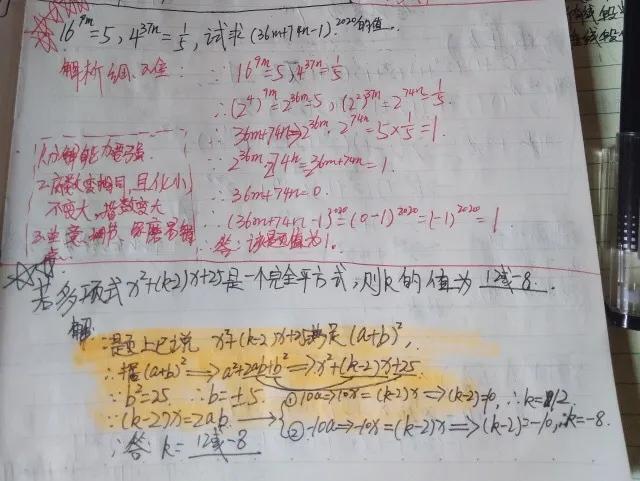 16^{9m}=5, 4^{37n}=\frac{1}{5}, 试求(36m+74n-1)^{2020}的值.
解析
∵ 16^{9m}=5, 4^{37n}=\frac{1}{5}
∴ (2^4)^{9m}=2^{36m}=5, (2^2)^{37n}=2^{74n}=\frac{1}{5}.
2^{36m}·2^{74n}=5×\frac{1}{5}=1.
36m+74n=1.
∴ 36m+74n=0.
(36m+74n-1)^{2020}=(0-1)^{2020}=(-1)^{2020}=1
答:该题值为1。
1.分解能力要强
2.底数变相同,且化小
不变大,指数变大
3.注意细节,
若多项式x²+(k-2)x+25是一个完全平方式,则k的值为 12或-8.
解:
∵题上已说 x²+(k-2)x+25满足(a+b)²,
∴把(a+b)²⟹a²+2ab+b²⟹x²+(k-2)x+25
∵b²=25. ∴b=±5.
∵(k-2)x=2ab.
①10a⟹10x=(k-2)x⟹(k-2)=10, ∴k=12.
②-10a⟹-10x=(k-2)x⟹(k-2)=-10, ∴k=-8.
∴答 k=12或-8